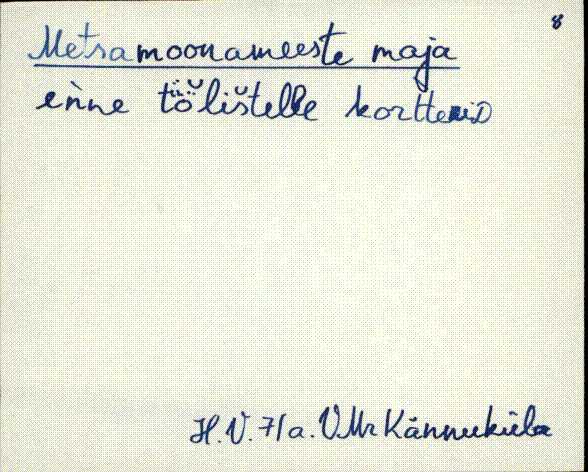 8
Metsamoonameeste maja
enne töölistelle kortterid
H.V. 71 a. VMr Kännuküla